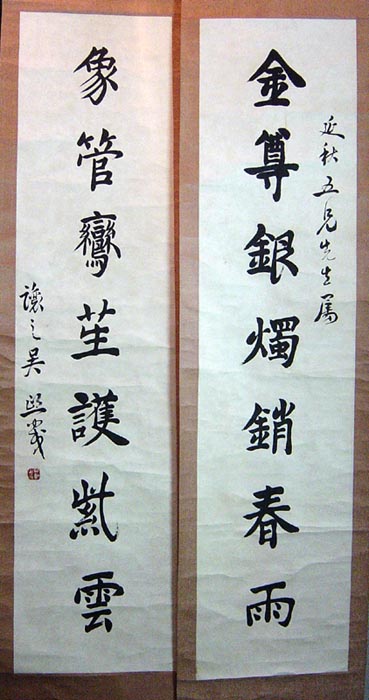 延秋五兄先生屬
金尊銀燭銷春雨
象管鸞笙護紫雲
讓之吳熙載